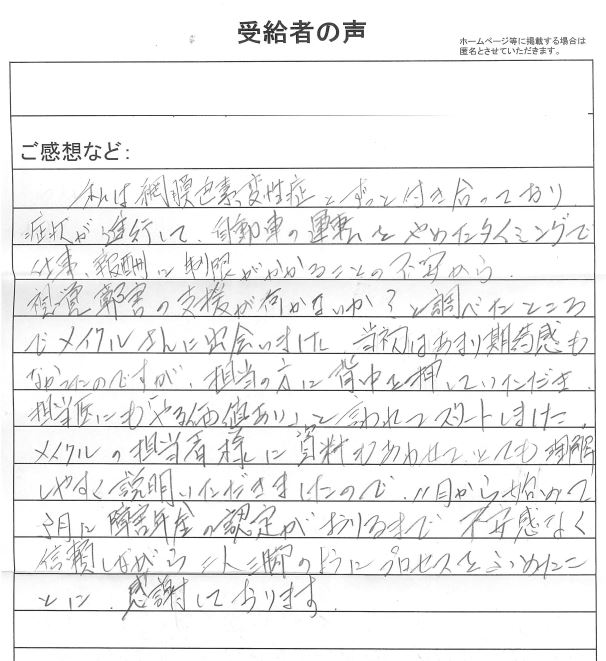 受給者の声
ホームページ等に掲載する場合は
匿名とさせていただきます。
ご感想など:
私は網膜色素変性症とずっと付き合っており
症状が進行して、自動車の運転をやめたタイミングで
仕事、報酬に制限がかかることの不安から、
視覚障害の支援が何かないか?と調べたところ
でメイクルさんに出会いました 当初はあまり期待感も
なかったのですが、担当の方に背中を押していただき、
担当医にも「やる価値あり」と言われてスタートしました。
メイクルの担当者様に資料もあわせてとても理解
しやすく説明いただきましたので、11月から始めて
3月に障害年金の認定がおりるまで 不安感なく
信頼しながら二人三脚のようにプロセスをふめたこ
とに、感謝しております。